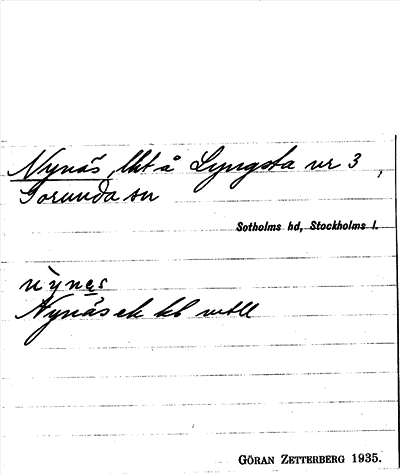 Nynäs, lht å Lyngsta nr 3,
Sorunda sn
Sotholms hd, Stockholms l.
nỳnẹs
Nynäs ek kl
GÖRAN ZETTERBERG 1935.